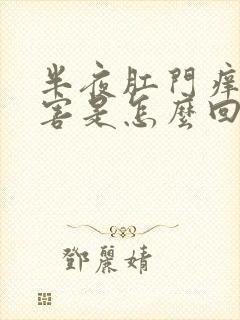 半夜肛門痒
害是怎麼回
鄧麗婧